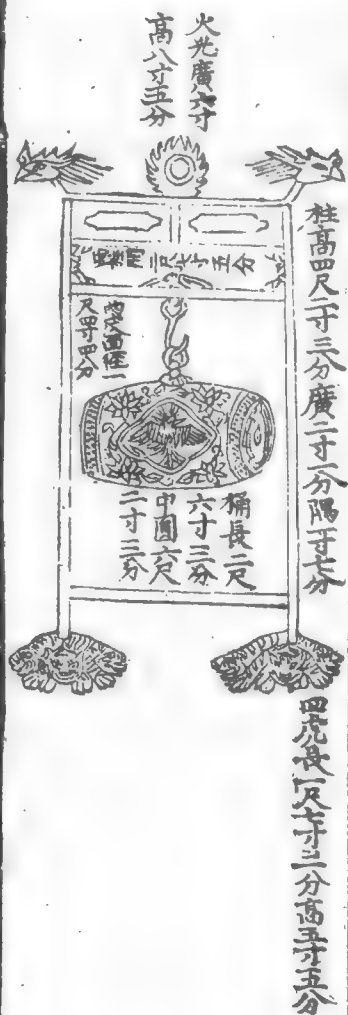 火光廣六寸
高八寸五分
柱高四尺二寸三分廣二寸一分隅一寸七分
二尺七寸五分
面徑一
尺四寸四分
桶長二尺
六寸三分
中圓六尺
二寸二分
四虎長一尺七寸二分高五寸五分